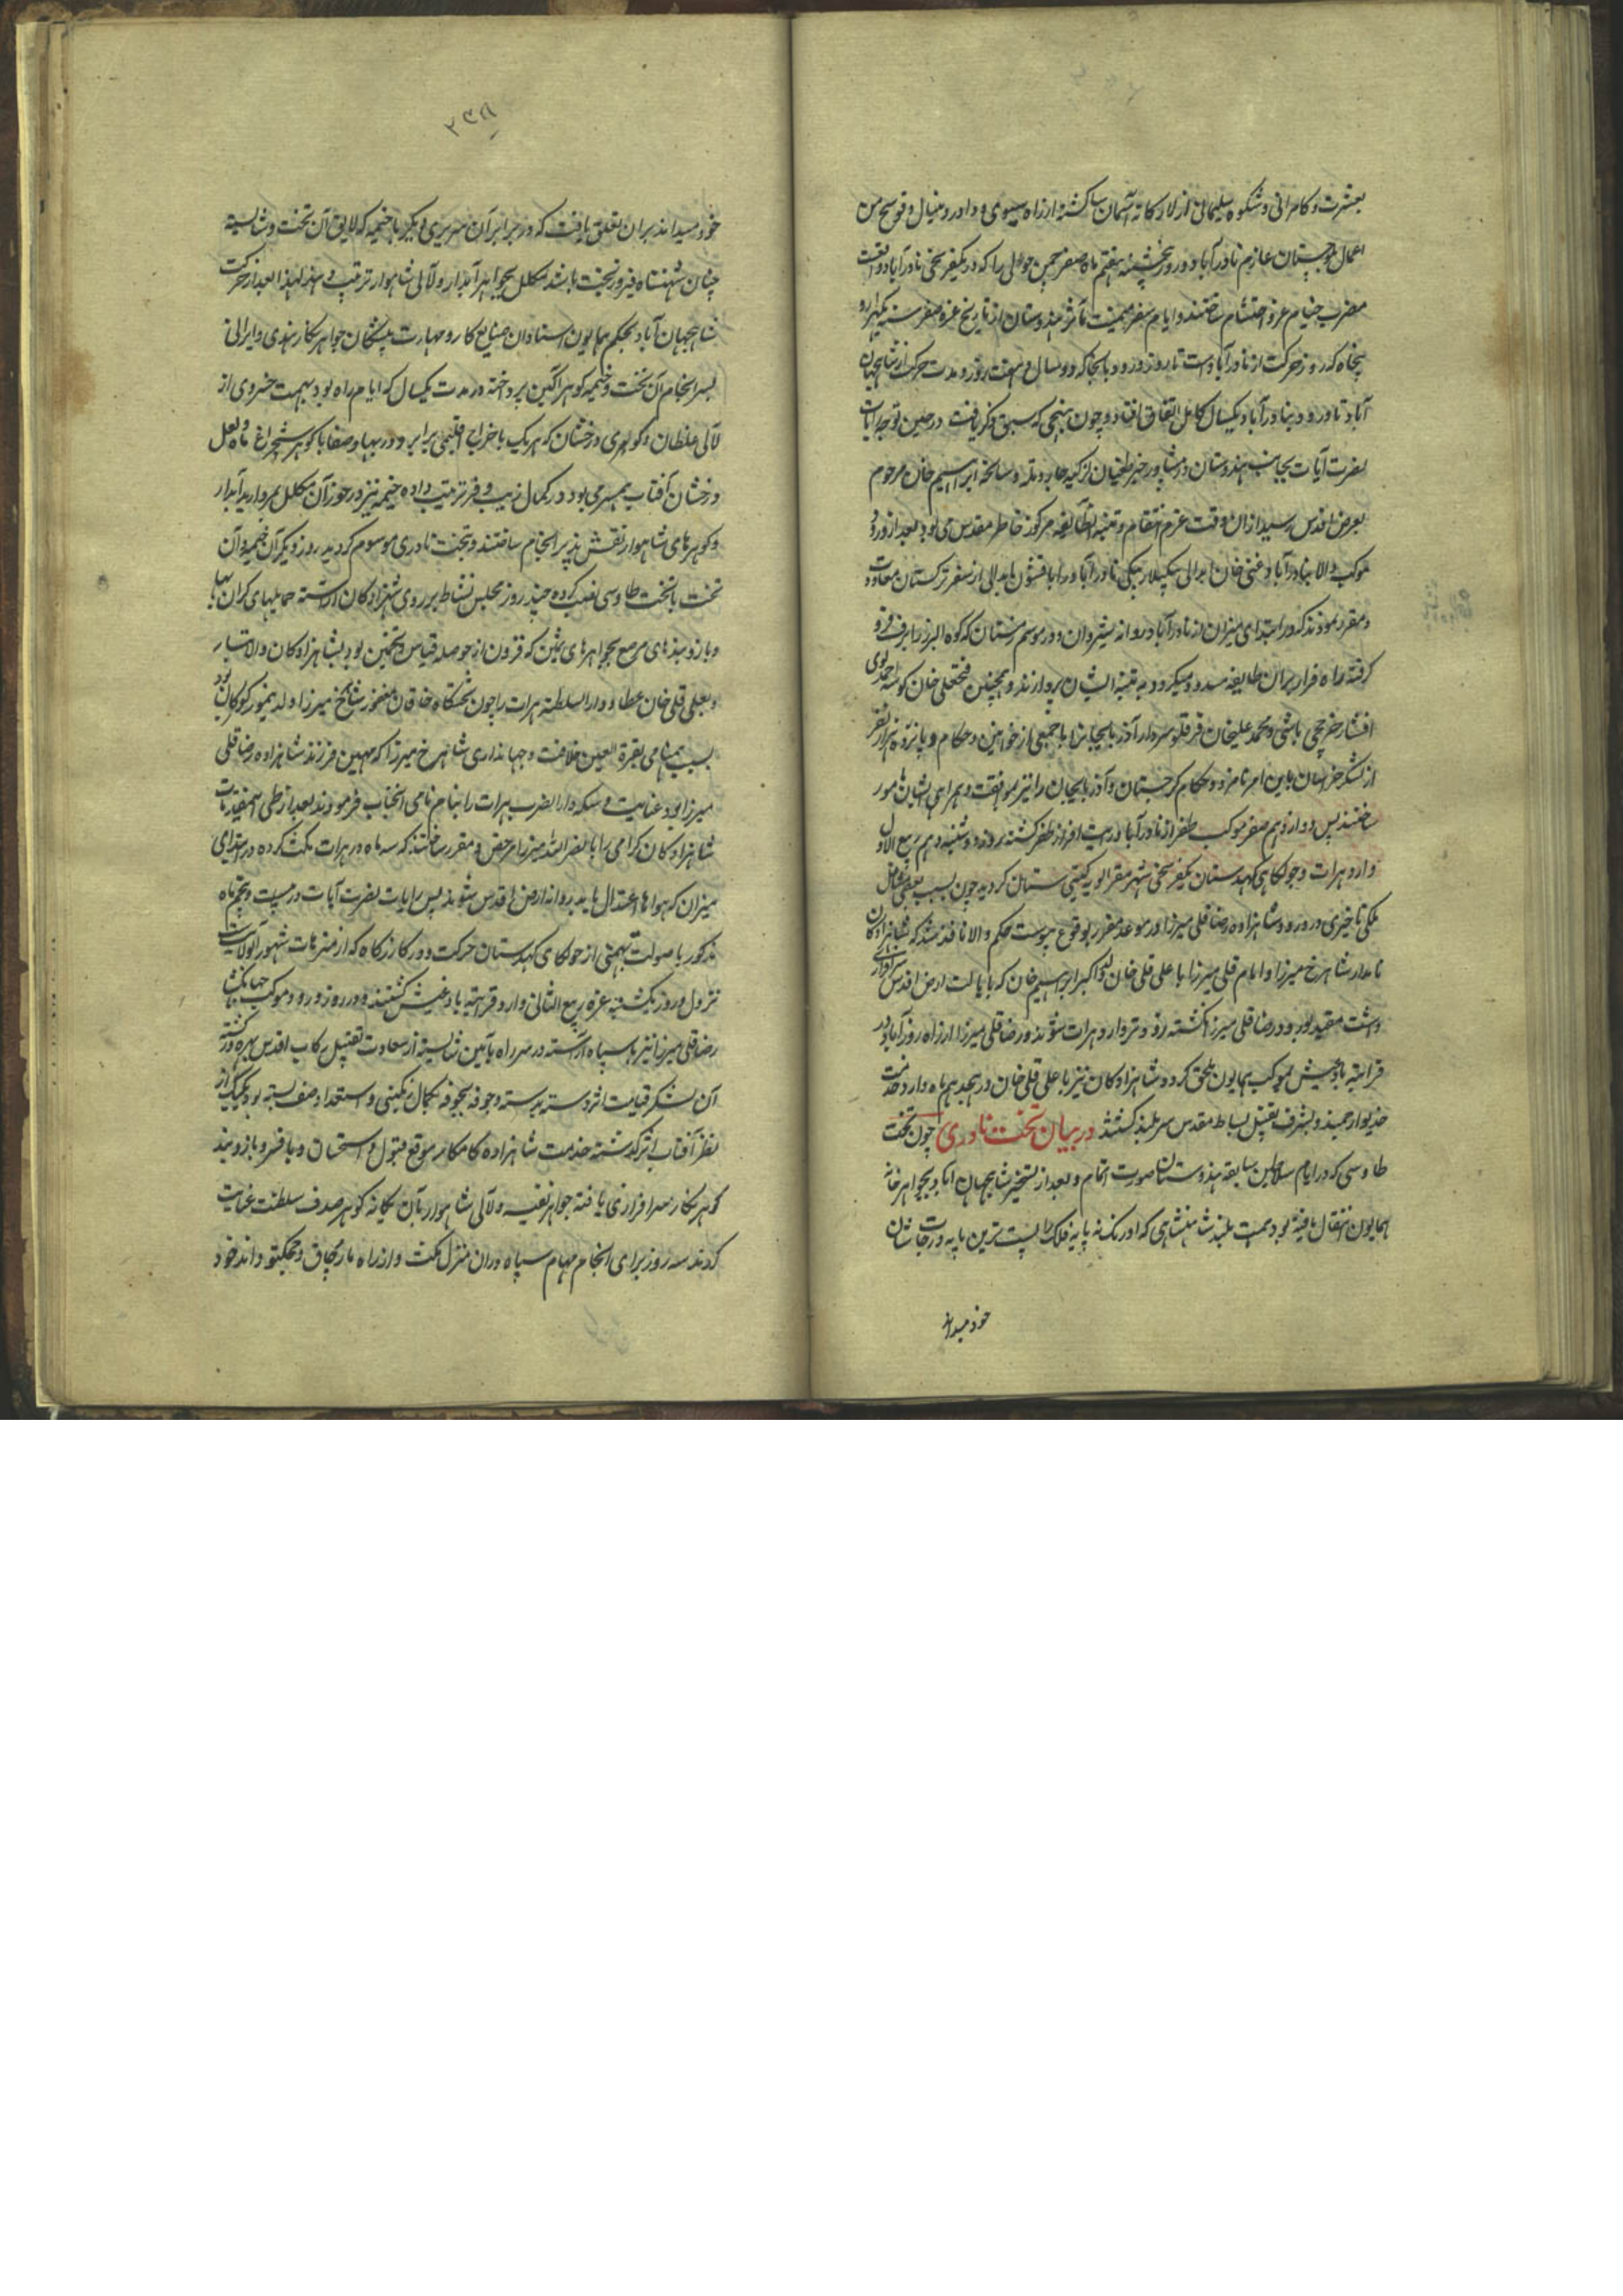 بعشرت و کامرانی و شکوه سلیمانی از لارکانه آسمان سا گشته از راه سیوی و داور و منیال و فوسنج من
اعمال بلوچستان عازم نادرآباد و در روز پنجشنبه هفتم ماه صفر چمن حوالی را که در یکفرسخی نادرآباد واقعست
مضرب خیام عز و احتشام ساختند و ایام سفر میمنت مآثر هندوستان از تاریخ غره صفر سنه یکهزار و
پنجاه که روز حرکت از نادرآباد است تا روز ورود بانجا که دو سال و هفت روز و مدت حرکت از شاهجهان
آباد تا ورود بنادرآباد یکسال کامل اتفاق افتاد و چون بنهجی که سبق ذکر یافت در حین توجه رایات
نصرت آیات بجانب هندوستان در پیشاور خبر طغیان لزکیه جار و تله و سانحه ابراهیم خان مرحوم
بعرض اقدس رسید از ان وقت عزم انتقام و تنبیه انطایفه مرکوز خاطر مقدس می بود بعد از ورود
موکب والا بنادرآباد غنی خان ابدالی بیگلربیگی نادرآباد را با قشون ابدالی از سفر ترکستان معاودت
و مقرر نمودند که در ابتدای میزان از نادرآباد روانه شیروان و در موسم زمستان که کوه البرز را برف فرو
گرفته راه فرار بر ان طایفه مسدود میکردد به تنبیه ایشان پردازند و همچنین فتحعلی خان کوسه احمدلوی
افشار چرخچی باشی و محمد علیخان قرقلو سردار آذربایجان را با جمعی از خوانین و حکام و پانزده هزار نفر
از لشکر خراسان باین امر نامزد و حکام کرجستان و آذربایجان را نیز بموافقت و همراهی ایشان مامور
ساختند پس دوازدهم صفر موکب ظفر از نادرآباد رایت افروز ظفر کشته روز دوشنبه دهم ربیع الاول
وارد هرات و جولکاهی کهدستان یکفرسخی شهر مقر الویه گیتی ستان کردید چون بسبب بعضی مشاغل
ملکی تاخیری در ورود شاهزاده رضا قلی میرزا در موعد مقرر بوقوع پیوست حکم والا نافذ شد که شاهزادکان
نامدار شاهرخ میرزا و امام قلی میرزا با علی قلی خان ولد اکبر ابراهیم خان که بایالت ارض اقدس سرافرازی
داشت مقید بورود رضا قلی میرزا نکشته زودتر وارد هرات شوند و رضا قلی میرزا از راه روزآباد در
قراتپه بادغیش بموکب همایون ملحق کردد شاهزادکان نیز با علی قلی خان در هجدهم ماه وارد خدمت
خدیو ارجمند و بشرف تقبیل بساط مقدس سر بلند کشتند در بیان تخت نادری چون تخت
طاوسی که در ایام سلاطین سابقه هندوستان صورت اتمام و بعد از تسخیر شاهجهان اباد بجواهر خانه
همایون انتقال یافته بود همت بلند شاهنشاهی که اورنک نه پایه فلک را پست ترین پایه درجات شان
خود میداند
۲۳۸
خود میداند بر ان تعلق یافت که در برابر آن سریری دیکر با خیمه که لایق آن تخت و شایسته
چنان شهنشاه فیروز بخت باشد مکلل بجواهر آبدار و لآلی شاهوار ترتیب دهند لهذا بعد از حرکت
شاهجهان آباد بحکم همایون استادان صنایع کار و مهارت پیشکان جواهر نکار هندی و ایرانی
بسرانجام آن تخت و خیمه کوهر آکین پرداخته در مدت یکسال که ایام راه بود بهمت خسروی از
لآلی غلطان و کوهری درخشان که هر یک با خراج اقلیمی برابر و در بها و صفا با کوهر شبچراغ ماه و لعل
درخشان آفتاب همسر می بود در کمال زیب و فر ترتیب داده خیمه نیز در خور آن مکلل بمروارید آبدار
و کوهرهای شاهوار نقش پذیر انجام ساختند و بتخت نادری موسوم کردید روز دیکر آن خیمه و آن
تخت با تخت طاوسی نصب کرده چند روز مجلس نشاط بر روی شهزادکان اراسته حمایلهای کران بها
و بازو بندهای مرصع بجواهرهای ثمین که فزون از حوصله قیاس و تخمین بود بشاهزادکان والاتبار
و بعلی قلی خان عطا و دار السلطنه هرات را چون تختکاه خاقان مغفور شاهرخ میرزا ولد تیمور کورکان بود
بسبب همنامی بقرة العین خلافت و جهانداری شاهرخ میرزا که مهین فرزند شاهزاده رضا قلی
میرزا بود عنایت و سکه دار الضرب هرات را بنام نامی انجناب فرمودند بعد از طی اینمقدمات
شاهزادکان کرامی را با نصر الله میرزا مرخص و مقرر ساختند که سه ماه در هرات مکث کرده در ابتدای
میزان که هواها باعتدال یابد روانه ارض اقدس شوند پس رایات نصرت آیات در بیست و پنجم ماه
مذکور با صولت بهمنی از جولکای کهدستان حرکت و در کازرکاه که از متنزهات مشهور آن ولایت است
نزول و روز یکشنبه غره ربیع الثانی وارد قراتپه بادغیش کشتند و در روز ورود موکب جهانکشا
رضا قلی میرزا نیز با سپاه آراسته در سر راه بآئین شایسته از سعادت تقبیل رکاب اقدس بهره ور کشته
آن لشکر قیامت اثر دسته بدسته و جوقه بجوقه بکمال تمکینی و استعداد صف بسته بود یکیک از
نظر آفتاب اثر کذشته خدمت شاهزاده کامکار موقع قبول و استحسان و بافسر و بازوبند
کوهر نکار سرافرازی یافته جواهر نفیسه و لآلی شاهوار بآن یکانه کوهر صدف سلطنت عنایت
کردند سه روز برای انجام مهام سپاه در ان منزل مکث و از راه ماروچاق و چیچکتو و اندخود